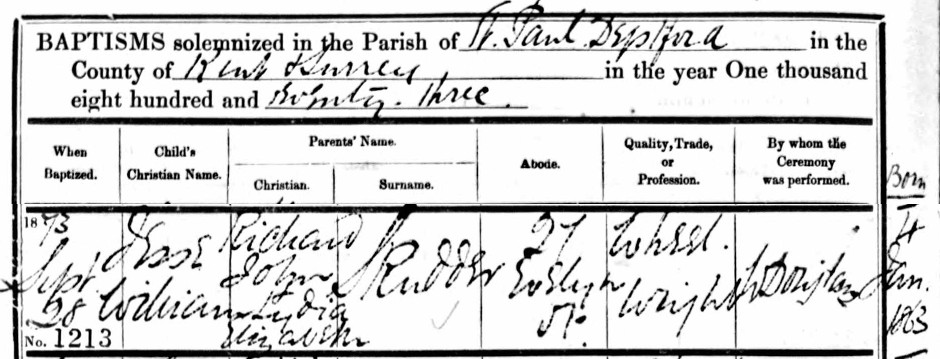 BAPTISMS solemnized in the Parish of St. Paul Deptford in the
County of Kent & Surrey in the year One thousand
eight hundred and Seventy-three.
When Baptized.
Child's Christian Name.
Parents' Name.
Christian.
Surname.
Abode.
Quality, Trade, or Profession.
By whom the Ceremony was performed.
Born
1873
Sept
28
No. 1213
Jesse
William
Richard
John
Lydia
Elizabeth
Skudder
27
Evelyn
St.
Wheel
wright
14
Jan.
1863